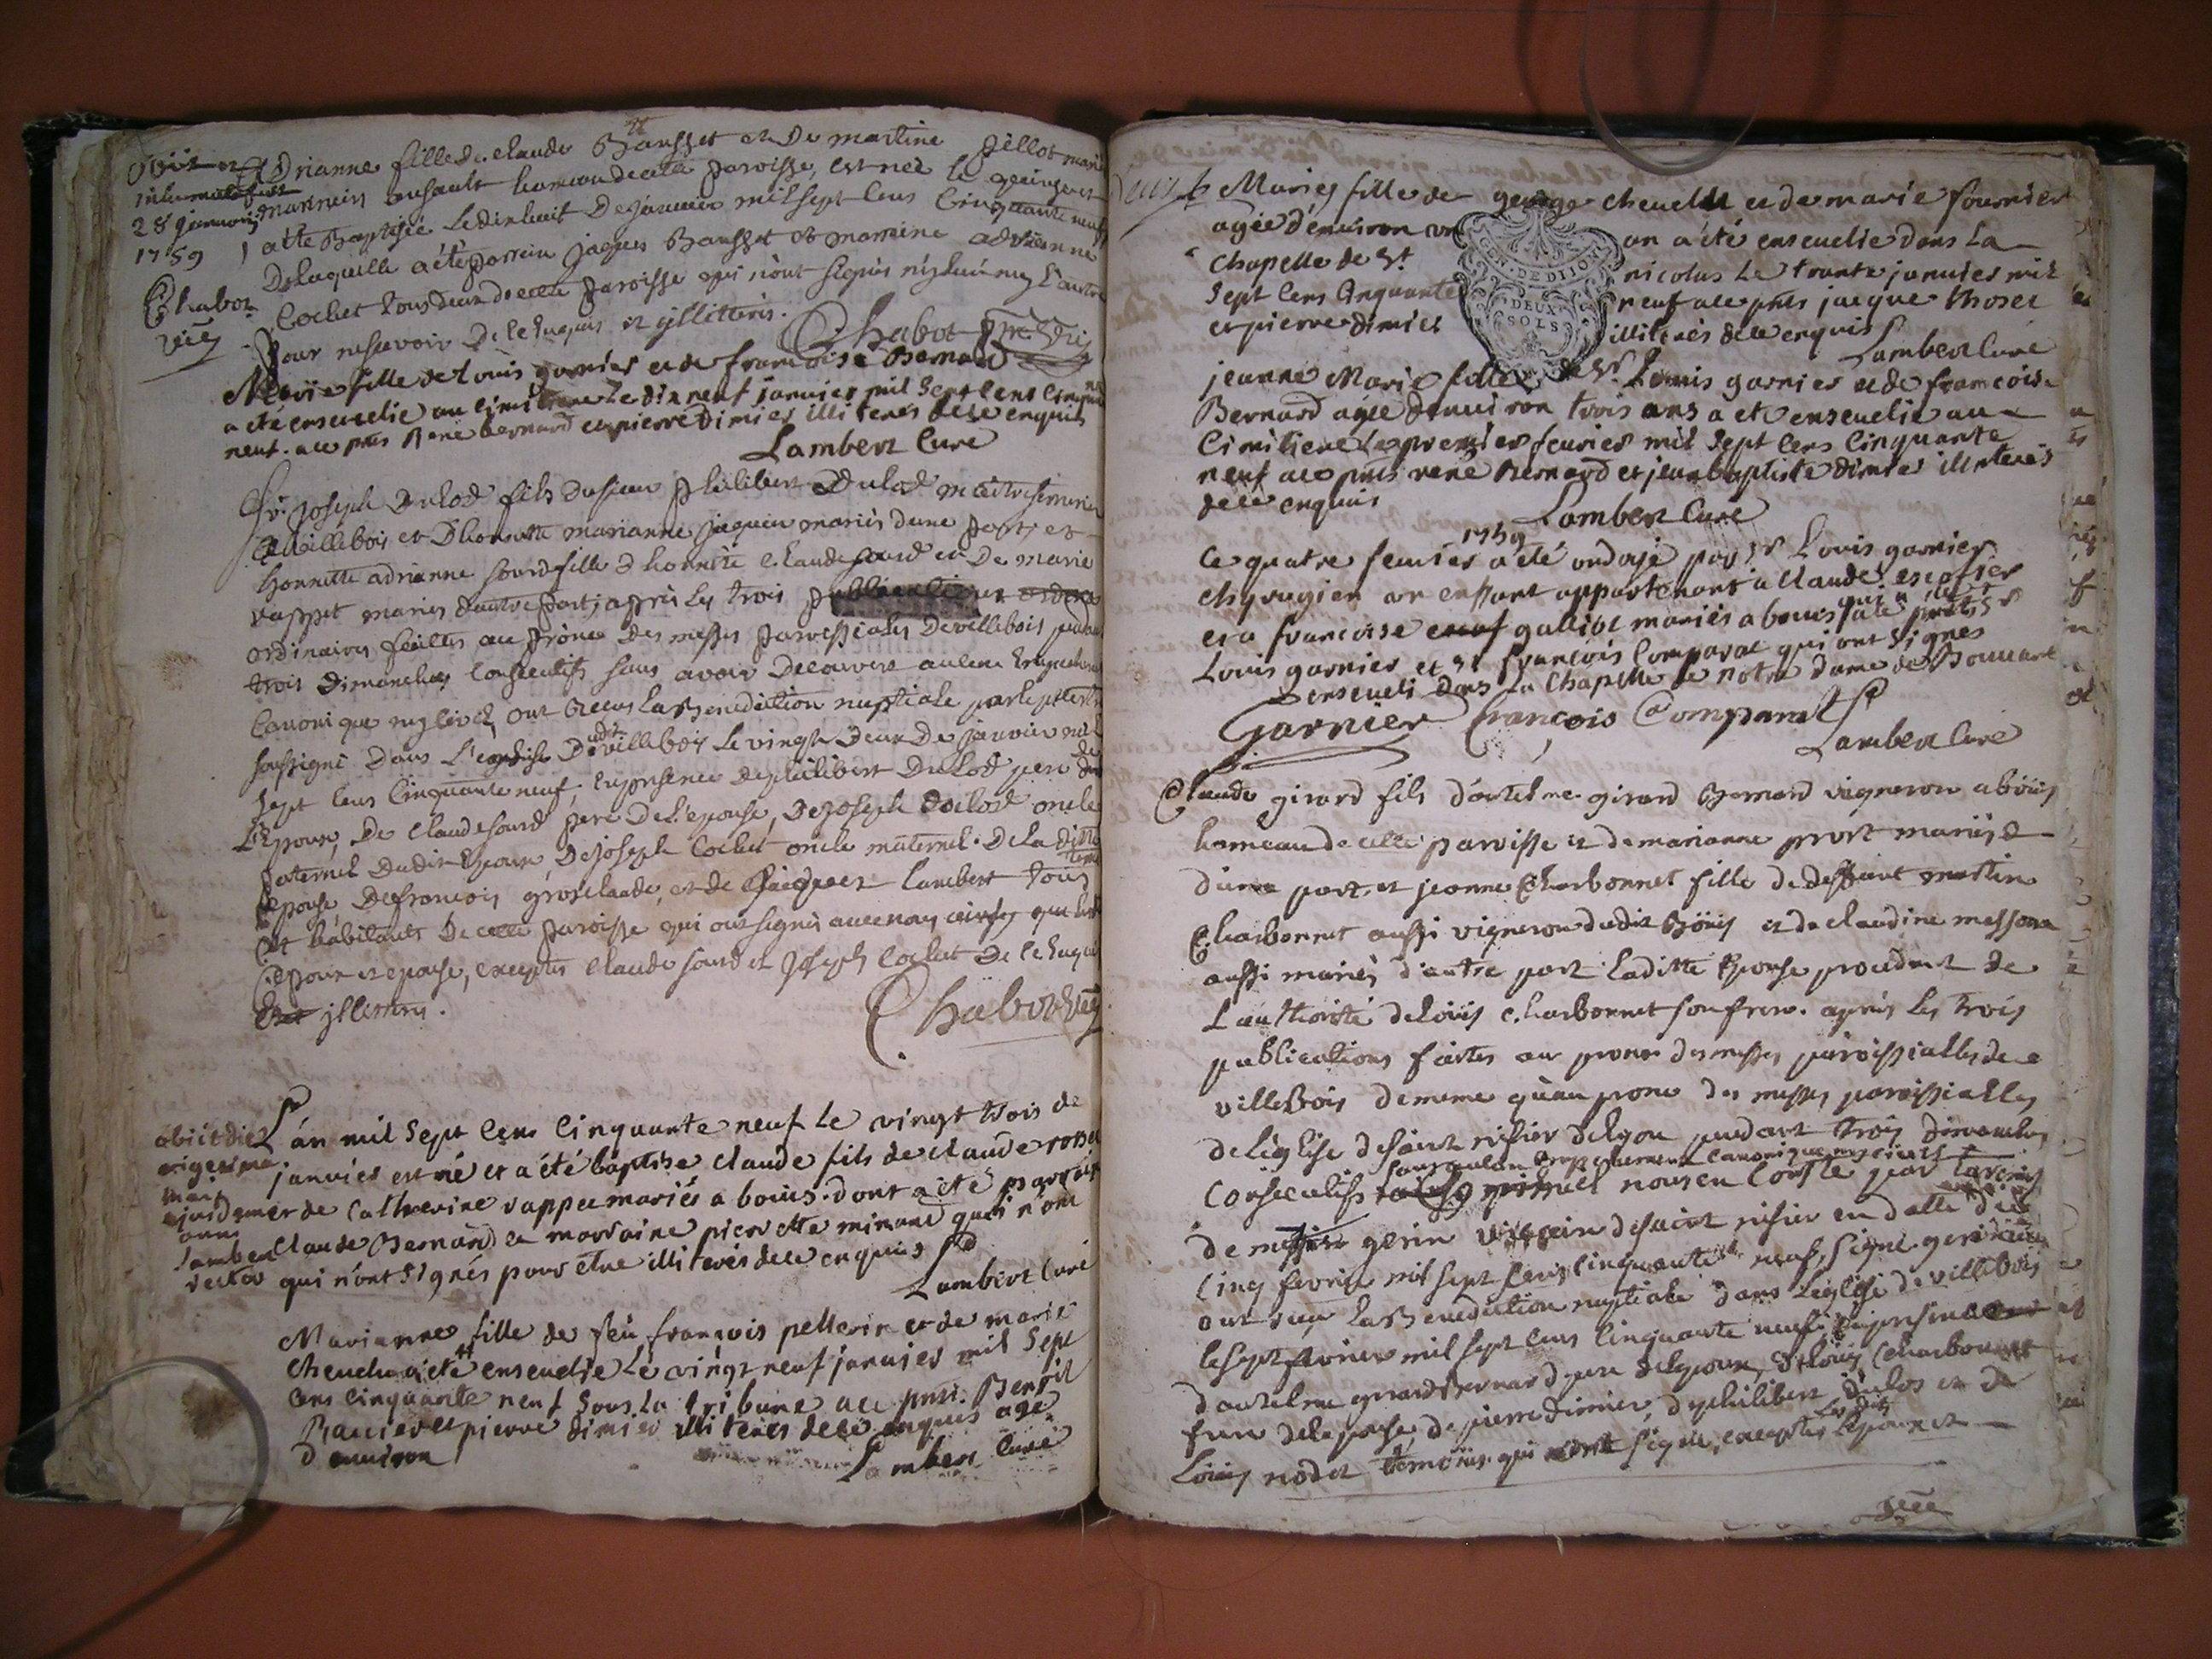 obiit et
inhumata fuit
28 januarij
1759
Chabot
vic
Adrianne fille de claude Bausset et De martine pillot mariés
ensault hameau de cette paroisse, est née le quinzient
a été Baptisée Le dixhuit De janvier mil sept cens Cinquante neuf
De laquelle a été parrein jaques Bausset et marreine adrianne
Cochet tous deux de cette paroisse qui n'ont signés n'y l'un n'y l'autre
pour ne scavoir De ce Enquis et jllitterés.
Chabot
Marie fille de Louis garnier et de francoise Bernard
a été ensevelie au Cimitiere Le dix neuf janvier mil Sept Cens Cinqua
neuf. ace pnts René bernard et pierre Dimier illiterés de ce enquis
Lambert Curé
Sr. joseph Dulod fils du sieur philibert Dulod
a villebois et D'honnette marianne jaquin mariés d'une part, et
honnette adrianne sourd fille d'honnête Claude sourd et De marie
vappet mariés d'autre part, après les trois publications
ordinaires faittes au prône Des messes paroissiales De villebois pendant
trois Dimanches Consecutifs sans avoir Decouvert aucun Empechement
Canonique ny civil, ont Receus la Benediction nuptiale par le
soussigné Dans L'eglise Dudit villebois Le vingt Deux De janvier mil
sept Cens Cinquante neuf, En presence de philibert Dulod pere de
L'Epoux, De Claude sourd pere De L'epouse, De joseph Dulod oncle
paternel Dudit Epoux, De joseph Cochet oncle maternel De la ditte
epouse De francois grosclaude, et de Jacques Lambert tous
et habitants De cette paroisse qui ont signés avec nous ainsy que les
Epoux et epouse, exceptés Claude sourd et joseph Cochet De ce Enquis
jllitterés.
Chabot vic
obiit die
vigesima
maii
ejusdem
anni
Lambert
rector
L'an mil Sept Cens Cinquante neuf Le vingt trois de
janvier est né et a été baptise claude fils de claude rosset
et de Catherine vappet mariés a bouis. dont a été parrain
Claude Bernard et marraine pierrette minand qui n'ont
qui n'ont Signés pour etre illiterés de ce enquis
Lambert Curé
Marianne fille de feu françois pellerin et de marie
Chevelu a été ensevelie Le vingt neuf janvier mil Sept
Cens Cinquante neuf Sous La tribune ace pnts. Benoit
et pierre dimier illiterés de ce enquis age
d'environ
Lambert Curé
Marie fille de george chevelu et de marie fournier
agée d'environ un an a été ensevelie dans La
Chapelle de St. nicolas Le trente janvier mil
Sept Cens Cinquante neuf ace pnts jacque thoset
et pierre dimier illiterés de ce enquis
Lambert Curé
GEN. DE DIJON
DEUX
SOLS
jeanne Marie fille de Sr. Louis garnier et de francoise
Bernard agée d'environ trois ans a été ensevelie au
Cimitiere Le premier fevrier mil Sept Cens Cinquante
neuf ace pnts rené Bernard et jean baptiste dimier illiterés
de ce enquis
Lambert Curé
1759
Ce quatre fevrier a été ondojé par Sr Louis garnier
chyrugien un enfant appartenant a Claude escofier
et a francoise galliot mariés a bouis
Louis garnier et Sr françois Comparat qui ont Signes
enseveli dans La Chapelle de notre dame de Bouvent
Garnier François Comparat
Lambert Curé
Claude girard fils d'antelme girard Bernard vigneron a bouis
hameau de cette paroisse et de marianne prost mariés
d'une part, et jeanne Charbonnet fille de deffunt martin
Charbonnet aussi vigneron dudit Boüis et de claudine
aussi mariés d'autre part laditte Epouse procedant de
L'authorité de Loüis Charbonnet son frere. après les trois
publications faites au prone des messes paroissialles de
villebois de meme qu'au prone des messes paroissialles
de l'église de saint nisier de lyon pendant trois dimanches
sans aucun Empechement Canonique ny civil
Consecutifs nous en Conste par
de gerin vicaire de saint nisier en datte du
Cinq fevrier mil sept Cens Cinquante neuf, signé. gerin vicaire
ont reçu la Benediction nuptiale dans L'église de villebois
le sept fevrier mil sept Cens Cinquante neuf En presence
d'antelme girard Bernard pere de l'epoux, de Loüis Charbonnet
frere de l'epouse, de pierre Dimier, de philibert dulos et de
Louis nodet temoins qui ont signé, exceptés Les dits Epoux et